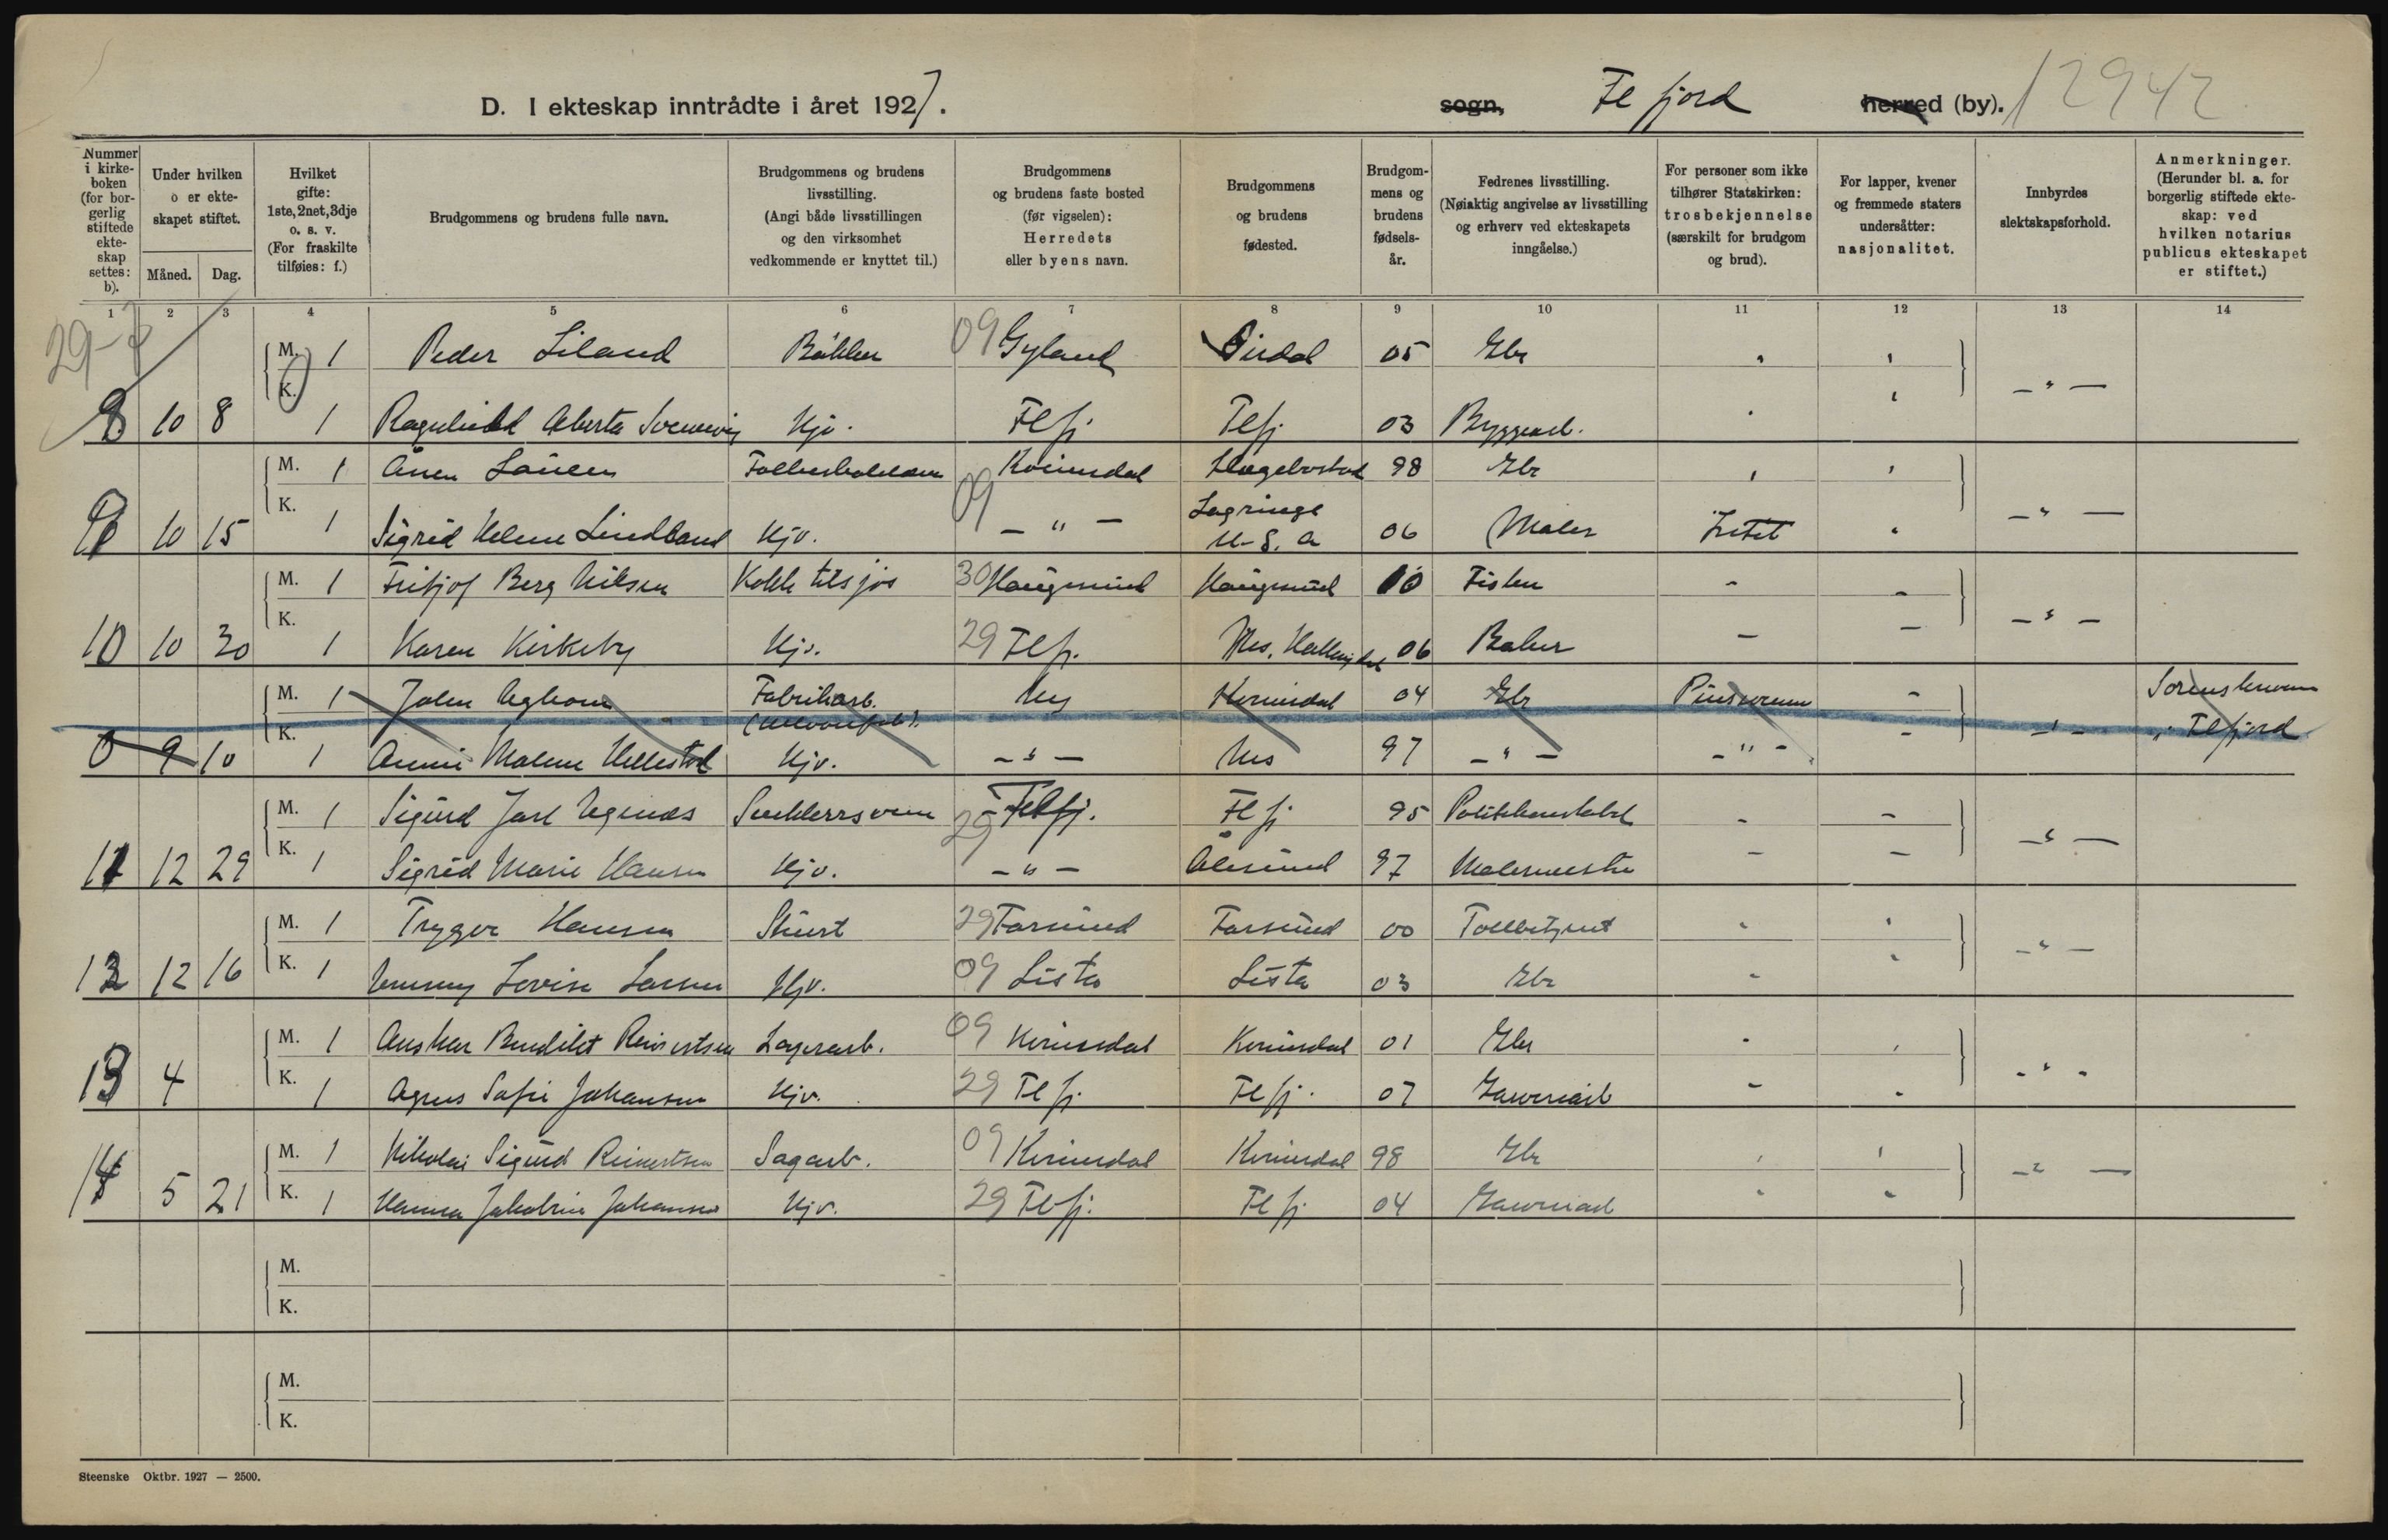 D. I ekteskap inntrådte i året 1927.
sogn, Flfjord herred (by). 12942
Nummer i kirkeboken (for borgerlig stiftede ekteskap settes: b).
Under hvilken o er ekteskapet stiftet.
Måned. Dag.
Hvilket gifte: 1ste, 2net, 3dje o. s. v. (For fraskilte tilføies: f.)
Brudgommens og brudens fulle navn.
Brudgommens og brudens livsstilling. (Angi både livsstillingen og den virksomhet vedkommende er knyttet til.)
Brudgommens og brudens faste bosted (før vigselen): Herredets eller byens navn.
Brudgommens og brudens fødested.
Brudgommens og brudens fødselsår.
Fedrenes livsstilling. (Nøiaktig angivelse av livsstilling og erhverv ved ekteskapets inngåelse.)
For personer som ikke tilhører Statskirken: trosbekjennelse (særskilt for brudgom og brud).
For lapper, kvener og fremmede staters undersåtter: nasjonalitet.
Innbyrdes slektskapsforhold.
Anmerkninger. (Herunder bl. a. for borgerlig stiftede ekteskap: ved hvilken notarius publicus ekteskapet er stiftet.)
1 2 3 4 5 6 7 8 9 10 11 12 13 14
M. 1 Peder Liland 09 Gyland Sirdal 05 Gbr
8 10 8 K. 1 Ragnhild Alberta Hjv. Flfj. Flfj. 03 Byggearb. — " —
M. 1 Lauen Kvinesdal Hægebostad 98 Gbr
10 15 K. 1 Sigrid Helene Lindland Hjv. 09 — " — U.S.A 06 Maler — " —
M. 1 Fritjof Berg Nilsen Kokk tilsjøs 30 Haugesund Haugesund 10 Fisker -
10 10 30 K. 1 Karen Kirkeby Hjv. 29 Flfj. Nes, Hallingdal 06 Baker — — " —
M. 1 John Fabrikarb. Nes Kvinesdal 04 Gbr Pinsevenn - Sorenskriveren
0 9 10 K. 1 Malene Hjv. — " — Nes 97 — " — — " — - i Flfjord
M. 1 Sigurd Jarl Snekkersvenn 29 Flfj. Flfj 95 Politikonstabel - -
11 12 29 K. 1 Sigrid Marie Hansen Hjv. — " — Ålesund 97 Malermester — — — " —
M. 1 Trygve Hansen Stuert 29 Farsund Farsund 00 Tollbetjent
12 12 16 K. 1 Lovise Larsen Hjv. 09 Lista Lista 03 Gbr — " —
M. 1 Ansker Benedikt Reinertsen Lagerarb. 09 Kvinesdal Kvinesdal 01 Gbr
13 4 K. 1 Agnes Sofie Johansen Hjv. 29 Flfj. Flfj. 07 Garveriarb - " -
M. 1 Nikolai Sigurd Reinertsen Sagarb. 09 Kvinesdal Kvinesdal 98 Gbr
14 5 21 K. 1 Hanna Jakobine Johansen Hjv. 29 Flfj. Flfj 04 Garveriarb — " —
M.
K.
M.
K.
Steenske Oktbr. 1927 — 2500.